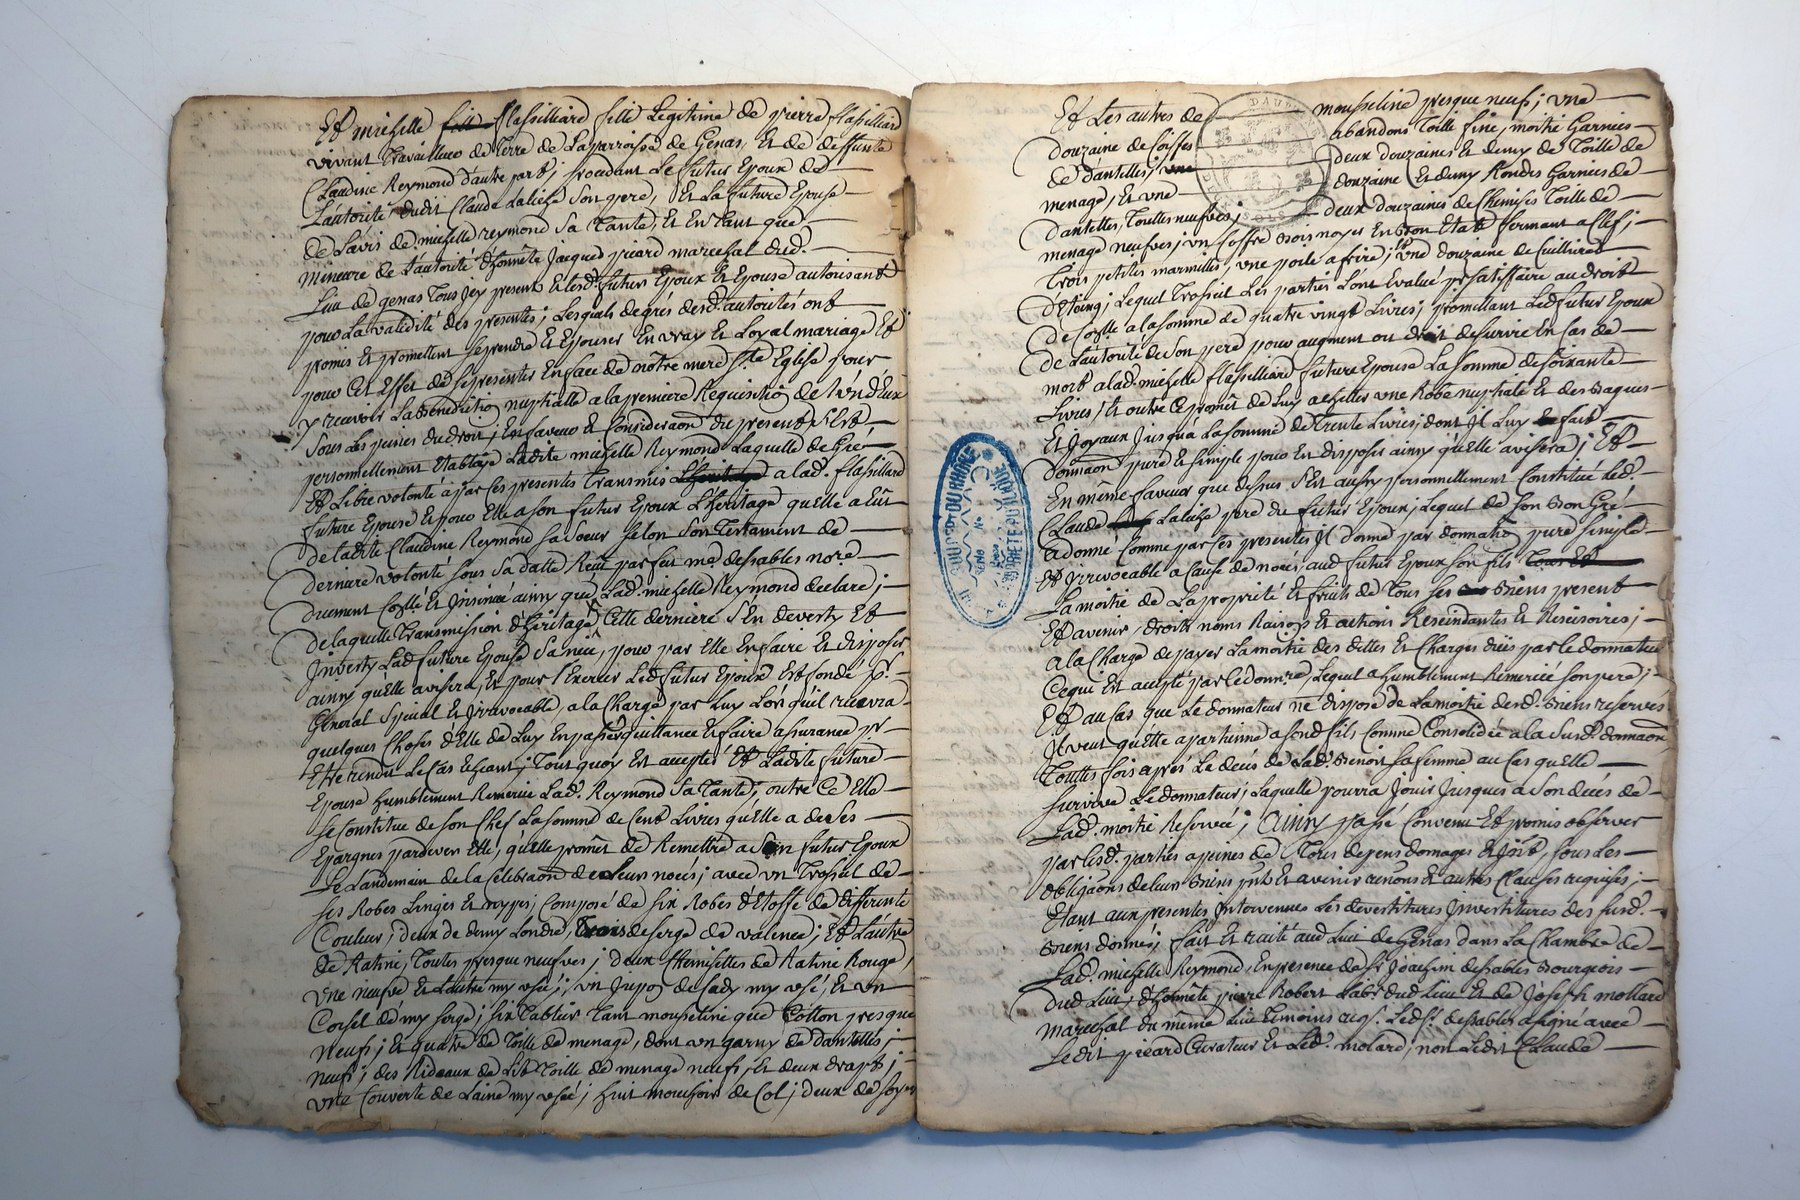 Et michelle flassilliard fille Legitime de pierre flassilliard
vivant travailleur de terre de La parroisse de Genas, Et de deffunte
Claudine Reymond d'autre part; procedant Le futur Epoux de
L'autorité dudit Claude Laliche Son pere, Et La future Epouse
de L'avis de michelle reymond Sa Tante, Et En tant que
mineure de L'autorité d'honnête Jacques picard marechal dud.
Lieu de genas tous icy present Et lesd. futurs Epoux Et Epouse autorisant
pour La validité des presentes; Lesquels de grés desd. autorités ont
promis Et promettent se prendre Et Epouser En vray Et Loyal mariage Et
pour Cet Effet de se presenter En face de nôtre mere Ste Eglise pour
y recevoir La Benediction nuptialle a la premiere Requisition de L'un d'Eux
Sous Les peines du droit; En faveur Et Consideraon du present S'est
personnellement Etablye Ladite michelle Reymond Laquelle de Gré
Et Libre volonté a par Ces presentes transmis a lad. flassilliard
future Epouse Et pour Elle a son futur Epoux L'heritage qu'elle a Eut
de ladite Claudine Reymond Sa Soeur Selon Son Testament de
derniere volonté Sous Sa datte Reçu par feu me dessables nore
duement Collé Et Insinué ainsy que Lad. michelle Reymond declare;
de laquelle transmission d'heritage Cette derniere S'En devesty Et
Investy Lad. future Epouse Sa niece, pour par Elle En faire Et disposer
ainsy qu'Elle avisera, Et pour L'Exercer Led. futur Epoux Est fondé pr.
General Special Et Irrevocable, a la Charge par Luy Lors qu'il recevra
quelques Choses d'Elle de Luy En passer quittance Et faire assurance pr
Etre rendu Le Cas Echeant; Tout quoy Est accepté Et Ladite future
Epouse humblement Remercie Lad. Reymond Sa Tante, outre Ce Elle
Se Constitue de Son Chef La somme de Cent Livres qu'Elle a de Ses
Epargnes pardever Elle, qu'elle promet de Remettre a Son futur Epoux
Le Landemain de la Celebraon de Leurs noces; avec un Trossel de
Ses Robes Linges Et nippes; Composé de Six Robes d'Etoffe de differente
Couleur; deux de demy Londre, trois de serge de valence; Et L'autre
de Ratine, Toutes presque neufves; deux Chemisettes de Ratine Rouge,
une neufve Et L'autre my usée; un Jupon de Cady my usé, Et un
Corset de my serge; Six Tablier tant mousseline que Cotton presque
neufs; Et quatre de Toille de menage, dont un garny de dantelles;
neuf; des Rideaux de Lit Toille de menage neufs, Et deux draps;
une Couverte de Laine my usée; huit mouchoirs de Col; deux de soye
Et Les autres de mousseline presque neufs; une
douzaine de Coiffes abandons Toille fine, moitié Garnies
de dantelles; deux douzaines Et demy de Toille de
menage, Et une douzaine Et demy Rondes Garnies de
dantelles, Toutes neufves; deux douzaines de Chemises Toille de
menage neufves; un Coffre Bois noyer En Bon Etat fermant a Clef;
Trois petites marmittes, une poile a frire; Et une douzaine de Cuillieres
d'Etaing; Lequel Trossel Les parties L'ont Evalué pr satisffaire au droit
de Colle a la somme de quatre vingt Livres; promettant Led. futur Epoux
de L'autorité de Son pere pour augment ou droit de survie En Cas de
mort a lad. michelle flassilliard future Epouse La somme de Soixante
Livres, Et outre Ce promet de Luy achetter une Robe nuptiale Et des Bagues
Et Joyaux Jusqu'a La somme de Trente Livres, dont Il Luy fait
donnaon pure Et simple pour En disposer ainsy qu'Elle avisera; Et
En même faveur que dessus S'Est aussy personnellement Constitué Led.
Claude Laliche pere du futur Epoux; Lequel de Son Bon Gré
a donné Comme par Ces presentes Il donne par donnation pure simple
Et Irrevocable a Cause de noces, aud. futur Epoux son fils
La moitié de La proprieté Et fruits de Tous Ses Biens present
Et avenir, droits noms Raisons Et actions Rescindantes Et Rescisoires;
a la Charge de payer La moitié des dettes Et Charges dües par le donnateur
Ce qui Est accepté par le donnre, Lequel a humblement Remercié Son pere;
Et au Cas que Le donnateur ne dispose de La moitié desd. Biens reservés
Il veut qu'Elle apartienne a sond. fils Comme Consolidée a la Susd. donnaon
Touttes fois aprés Le decés de Lad. Benoit Sa femme au Cas qu'Elle
Survive Le donnateur; Laquelle pourra Jouir Jusques a Son decés de
Lad. moitié Reservée; Ainsy passé Convenu Et promis observer
par lesd. parties a peines de Tous depens domages Et Intt, Sous Les
obligaons de leurs Biens pnts Et avenir renons Et autres Clauses requises;
Etant aux presentes Intervenues Les devestitures Investitures des susd.
Biens donnés; fait Et recité aud. Lieu de Genas dans La Chambre de
Lad. michelle Reymond, En presence de Sr Joachim dessables Bourgeois
dud. Lieu, d'honnête pierre Robert Labr dud. Lieu Et de Joseph mollard
marechal du même Lieu Temoins reqs. Led. Sr. dessables a signé avec
Ledit picard Curateur Et Led. molard, non Ledit Claude